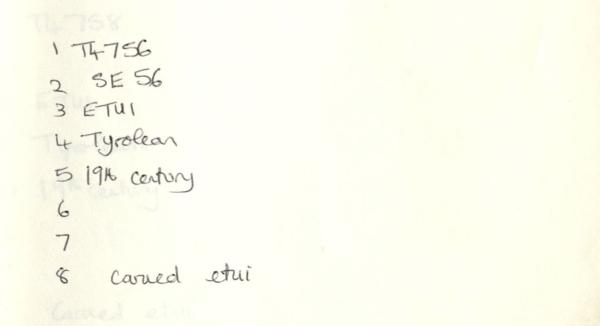 1 T4756
2 SE 56
3 ETUI
4 Tyrolean
5 19th century
6
7
8 carved etui